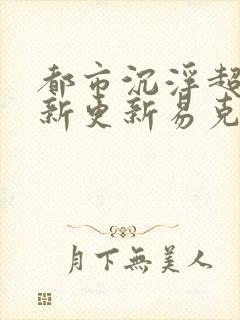 都市沉浮超
新更新易克
月下無美人